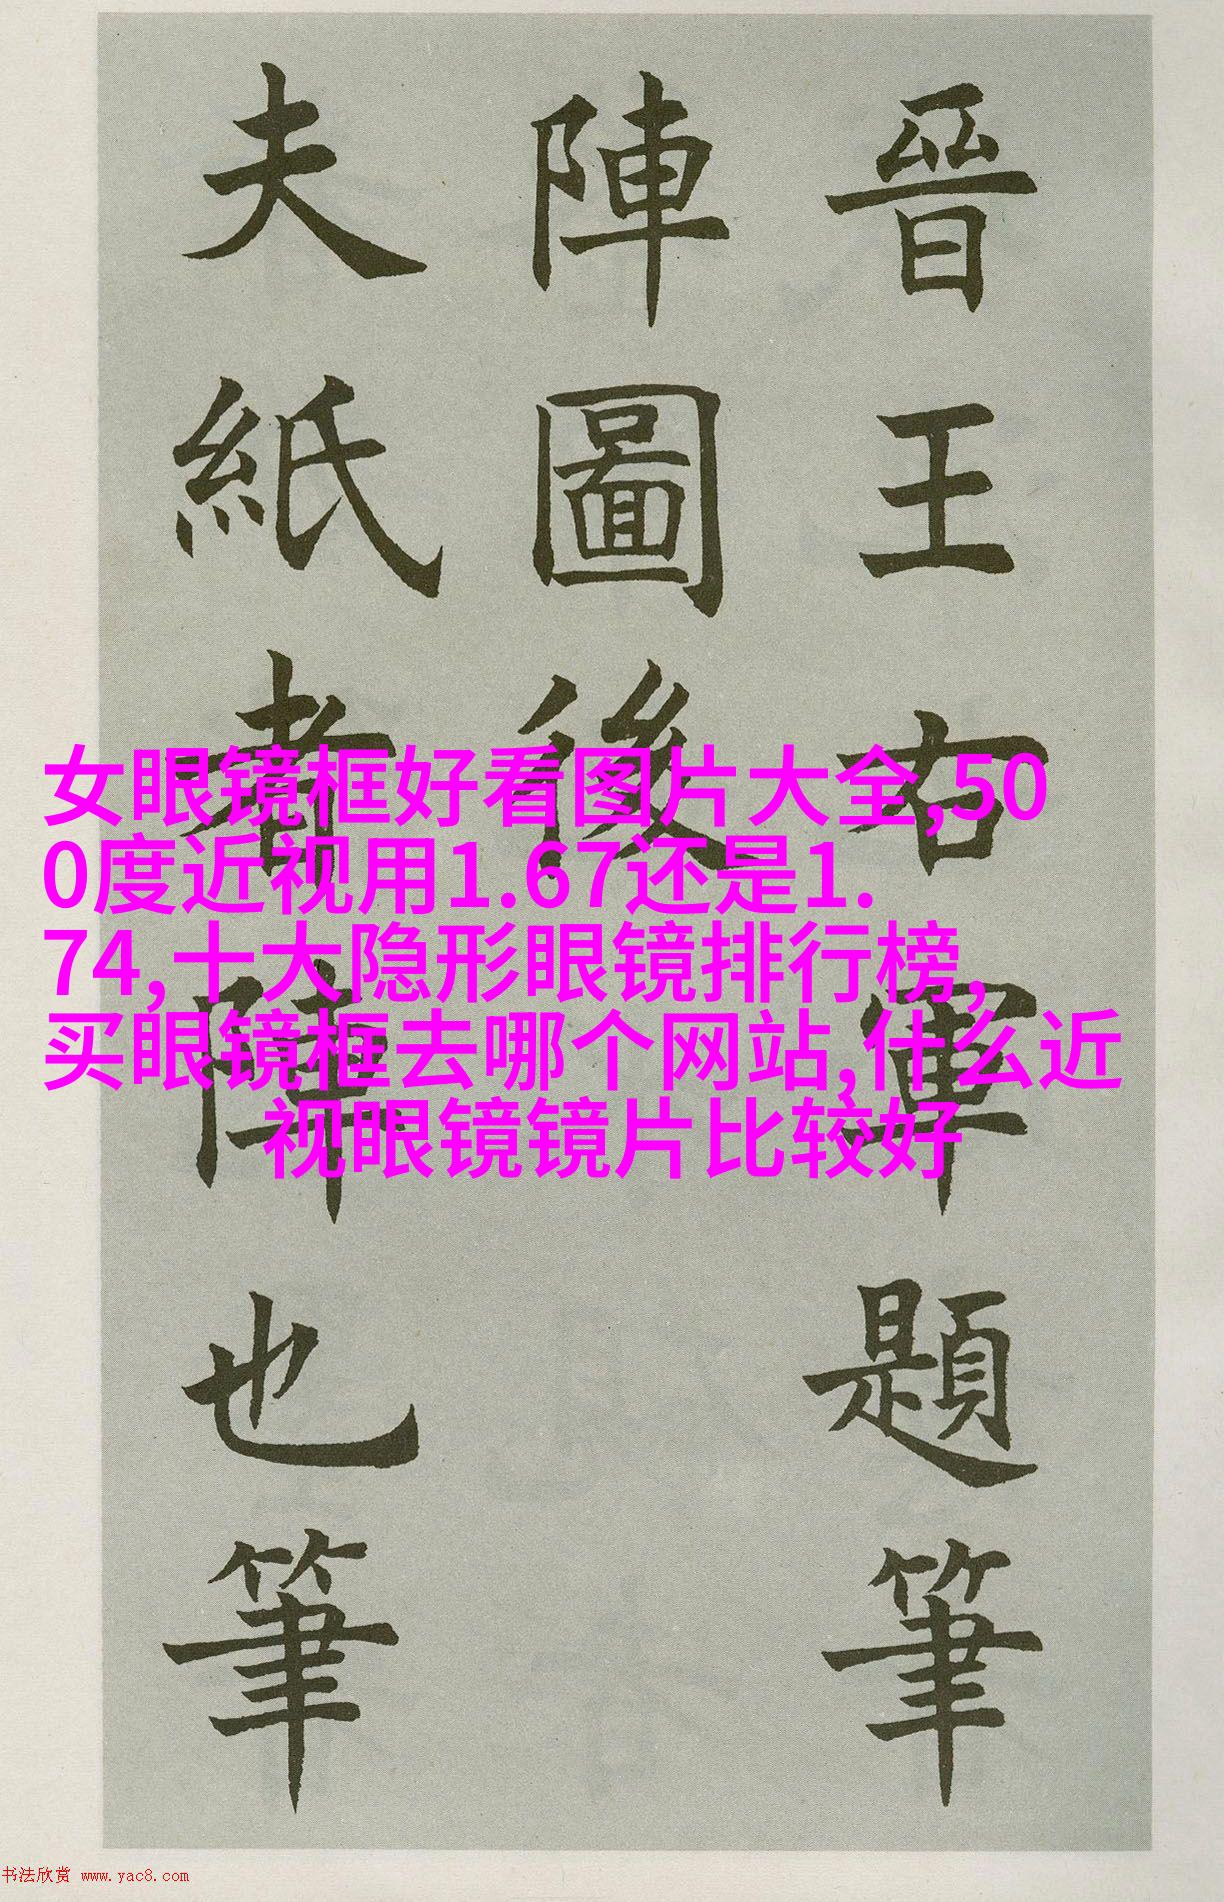 晉王右軍題筆
陣圖後
夫紙者陣也筆
女眼镜框好看图片大全,50
0度近视用1.67还是1.
74,十大隐形眼镜排行榜,
买眼镜框去哪个网站,什么近
视眼镜镜片比较好
书法欣赏 www.yac8.com